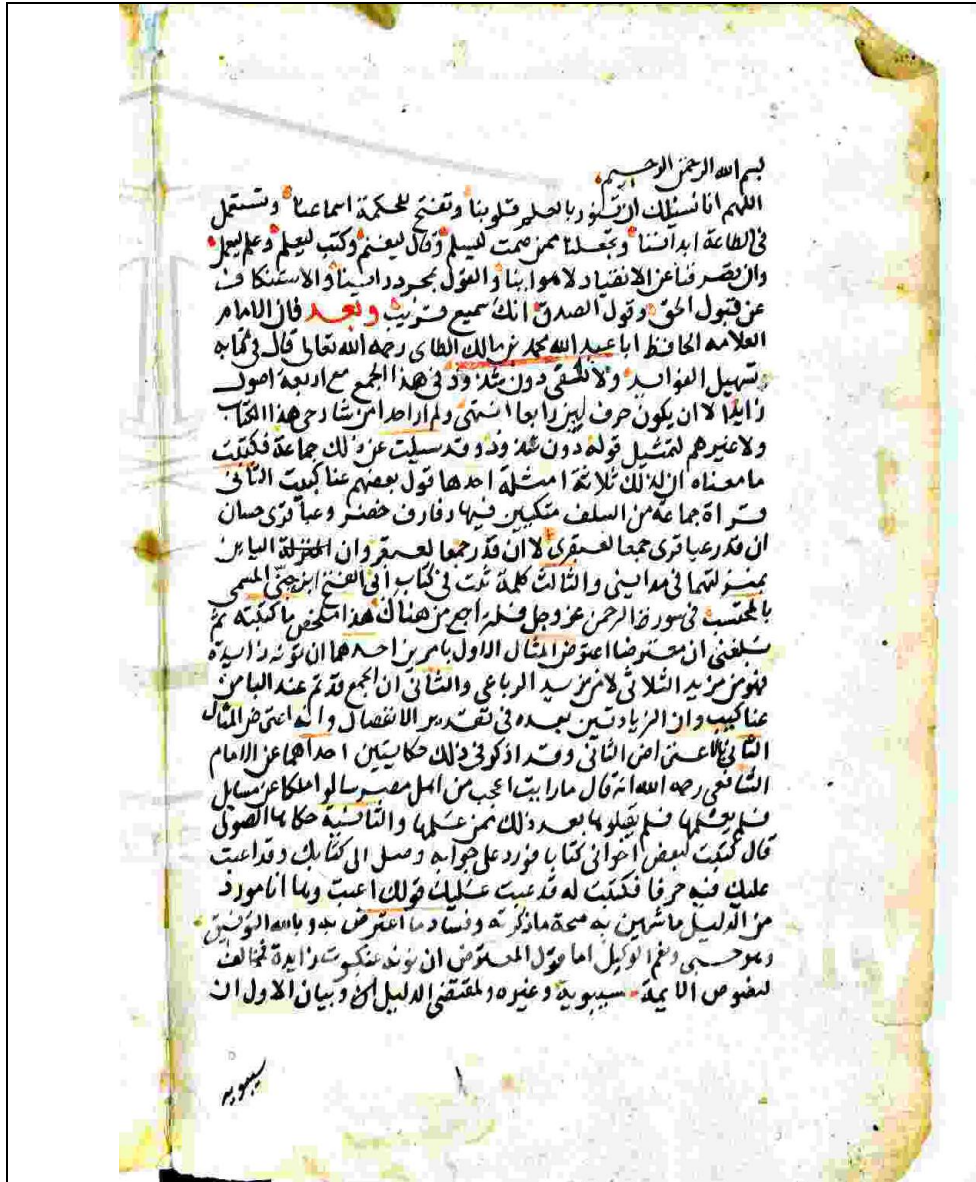 بسم الله الرحمن الرحيم
اللهم انا نسئلك ان تنور بالعلم قلوبنا وتفتح للحكمة اسماعنا وتستعمل
في الطاعة ابداننا وتجعلنا ممن صمت ليسلم وقال ليغنم وكتب ليعلم وعلم ليعمل
وان تصرفنا عن الانقياد لاهوابنا والقول بمجرد راينا والاستنكاف
عن قبول الحق وقول الصدق انك سميع قريب وبعد فان الامام
العلامه الحافظ ابا عبد الله محمد بن مالك الطاى رحمه الله تعالى قال في كتابه
تسهيل الفوايد ولا تبقى دون شذوذ في هذا الجمع مع اربعة اصول
زايد الا ان يكون حرف لين رابعا انتهى ولم ار احدا من شارحى هذا الكتاب
ولا غيرهم لتمثيل قوله دون شذوذ وقد سيلت عن ذلك جماعة فكتبت
ما معناه ان لذلك ثلاثة امثلة احدها قول بعضهم عناكبيت الثانى
قراة جماعة من السلف متكيين فيها رفارف خضر وعباقرى حسان
ان قدر عباقرى جمعا لعبقرى لا ان قدر جمعا لعبقر وان الياين
بمنزلتهما في مدايني والثالث كلمة ثبت في كتاب ابى الفتح ابن جنى المسمى
بالمحتسب في سورة الرحمن عز وجل فليراجع من هناك هذا ملخص ما كتبته ثم
بلغنى ان معترضا اعترض المثال الاول بامرين احدهما ان نونه زايدة
فهو من مزيد الثلاثى لا من مزيد الرباعى والثانى ان الجمع قد تم عند البا من
عناكيب وان الزيادتين بعده في تقدير الانفصال وانه اعترض المثال
الثانى بالاعتراض الثانى وقد اذكرنى ذلك حكايتين احداهما عن الامام
الشافعى رحمه الله انه قال ما رايت اعجب من اهل مصر سالوا ملكا عن مسايل
فلم يعلمها فلم يقبلوها بعد ذلك ممن علمها والثانية حكاها الصولى
قال كتبت لبعض اخوانى كتابا فورد على جوابه وصل الى كتابك وقد اعبت
عليك فيه حرفا فكتبت له قد عبت عليك قولك اعبت وها انا مورد
من الدليل ما تبين به صحة ما ذكرته وفساد ما اعترض به وبالله التوفيق
وهو حسبى ونعم الوكيل اما قول المعترض ان نون عنكبوت زايدة فمخالف
لنصوص الايمة سيبويه وغيره ولمقتضى الدليل وبيان الاول ان
سيبويه